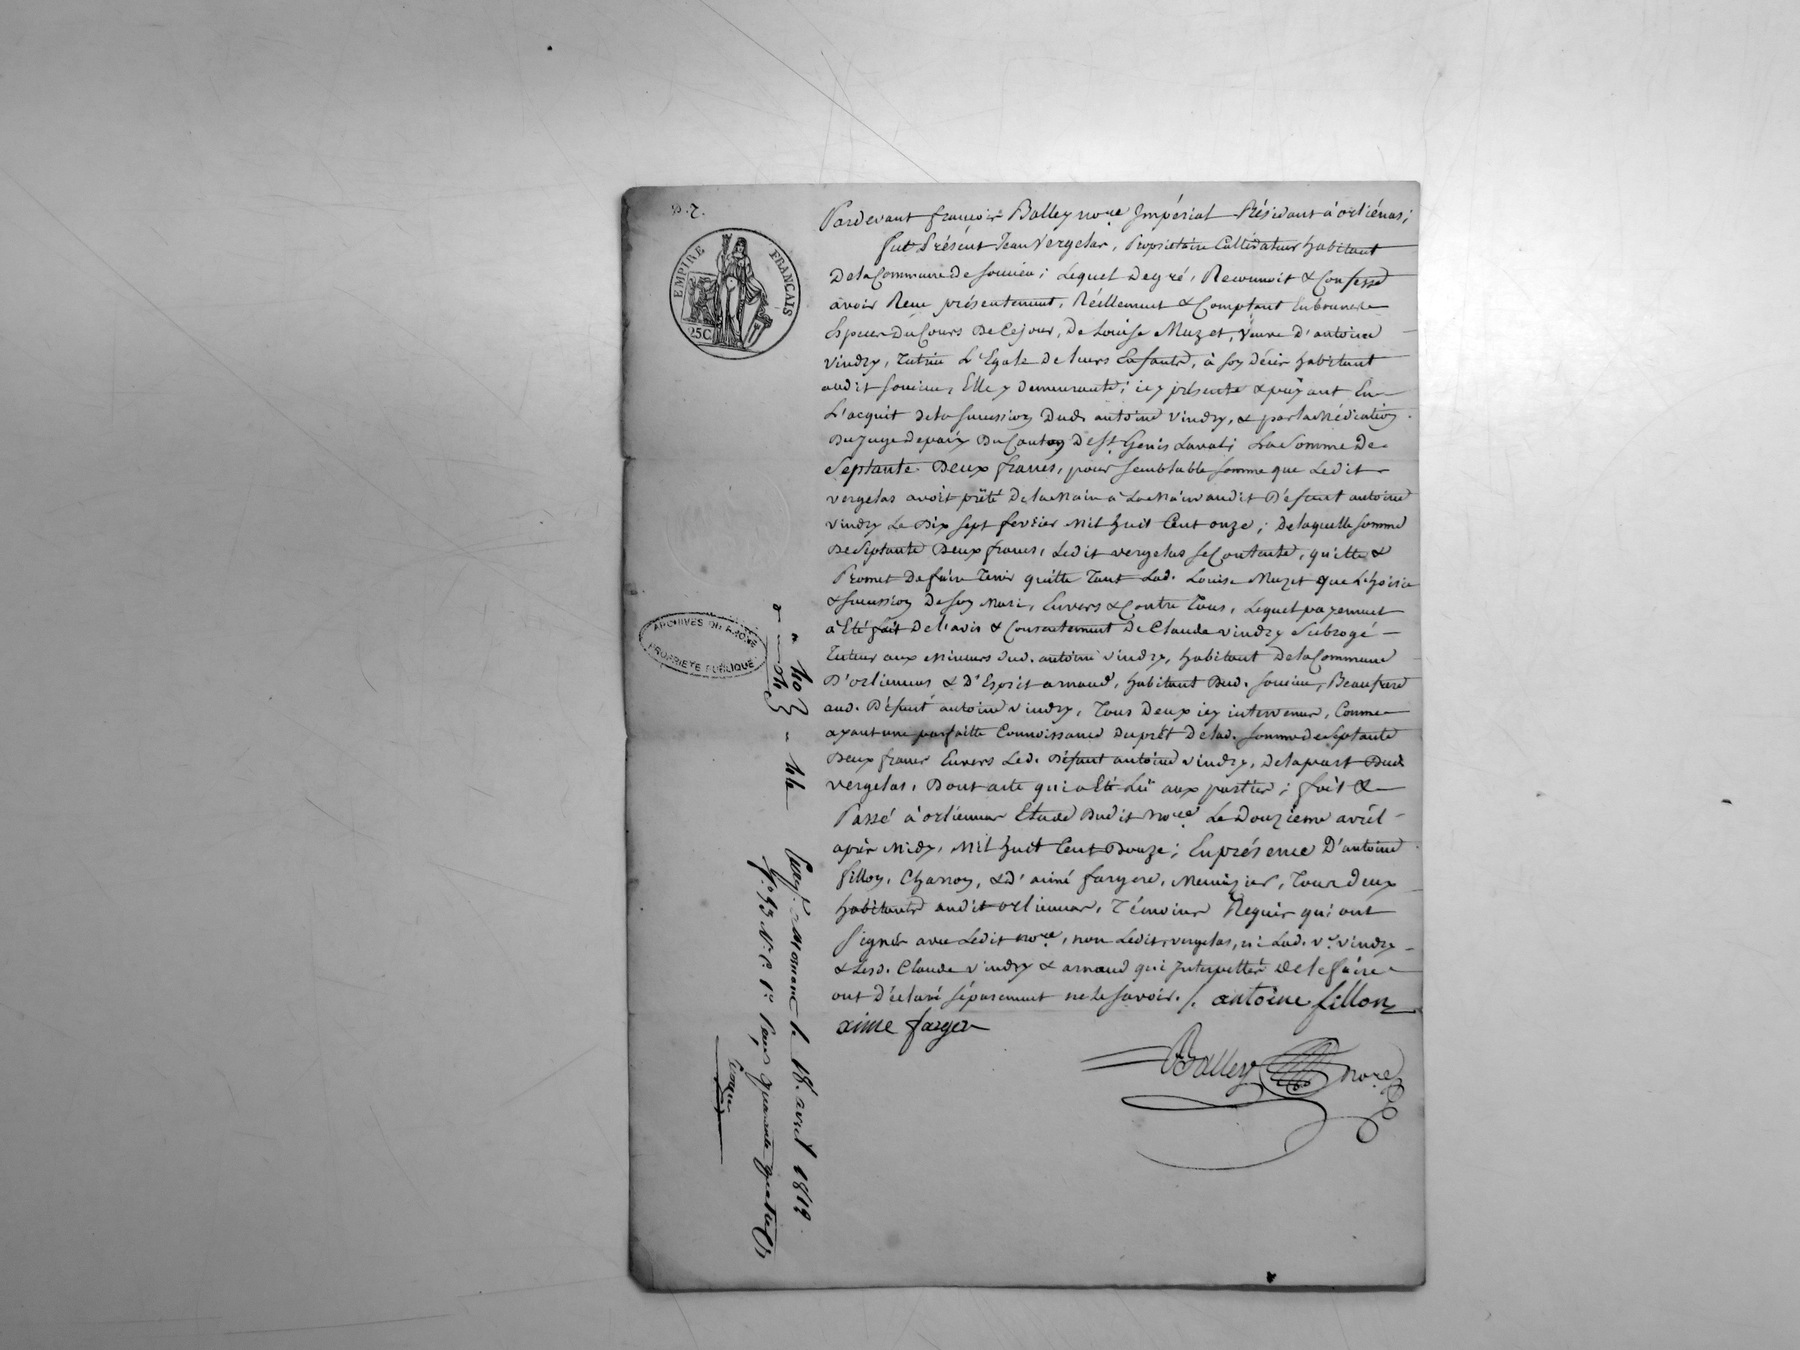 Pardevant françois Balley no.re Impérial Résidant à orliénas;
fut Présent Jean Vergelas, Propriétaire Cultivateur habitant
De la Commune De soucieu; Lequel De gré, Reconnoit & Confesse
avoir Reçu présentement, Réellement & Comptant En bonnes
Espèces Du Cours De Cejour, De Louise Muzet, Veuve D'antoine
vindry, Tutrice L'Egale de leurs Enfants, à soy Décis habitant
audit soucieu, Elle y demeurante; icy présente & payant En
L'acquit de la succession Dud. antoine Vindry, & par la Médiation
Du Juge de paix Du Canton De St. Genis Laval; La Somme De
Septante Deux francs, pour semblable somme que Ledit
vergelas avoit prêté De la Main à La Main audit Défunt antoine
vindry Le Dix sept fevrier Mil huit Cent onze; De laquelle somme
De Septante Deux francs, Ledit vergelas se Contente, quitte &
Promet De faire Tenir quitte Tant Lad. Louise Muzet que L'hoirie
& succession De son Mari, Envers & Contre Tous, Lequel payement
a Eté fait De l'avis & Consentement De Claude vindry Subrogé
Tuteur aux Mineurs dud. antoine Vindry, habitant De la Commune
D'orliennas & D'Esprit arnaud, habitant Dud. soucieu, Beaufrere
aud. Défunt antoine vindry, Tous Deux icy intervenus, Comme
ayant une parfaite Connoissance du prêt De lad. somme de Septante
Deux francs Envers Led. Défunt antoine vindry, De la part Dud.
vergelas, Dont acte qui a Eté Lû aux parties; fait &
Passé à orliennas Etude Dudit no.re Le Douzieme avril
après Midy, Mil huit Cent Douze; En présence D'antoine
fillon, Charron, & D'aimé fargere, Menuisier, Tous deux
habitants audit orliennas, Témoins Requis qui ont
signé avec Ledit no.re, non Ledit vergelas, ni Lad. v.e vindry
& Lesd. Claude vindry & arnaud qui Interpellés de le faire
ont Déclaré séparément ne le savoir. /. antoine fillon
aime farger
Balley no.re
EMPIRE FRANÇAIS
25C
ARCHIVES DU RHÔNE
PROPRIÉTÉ PUBLIQUE
Enreg. à Mornant le 18. avril 1812
f.o 93 N.o C. 1.re Reçu quarante quatre C.s